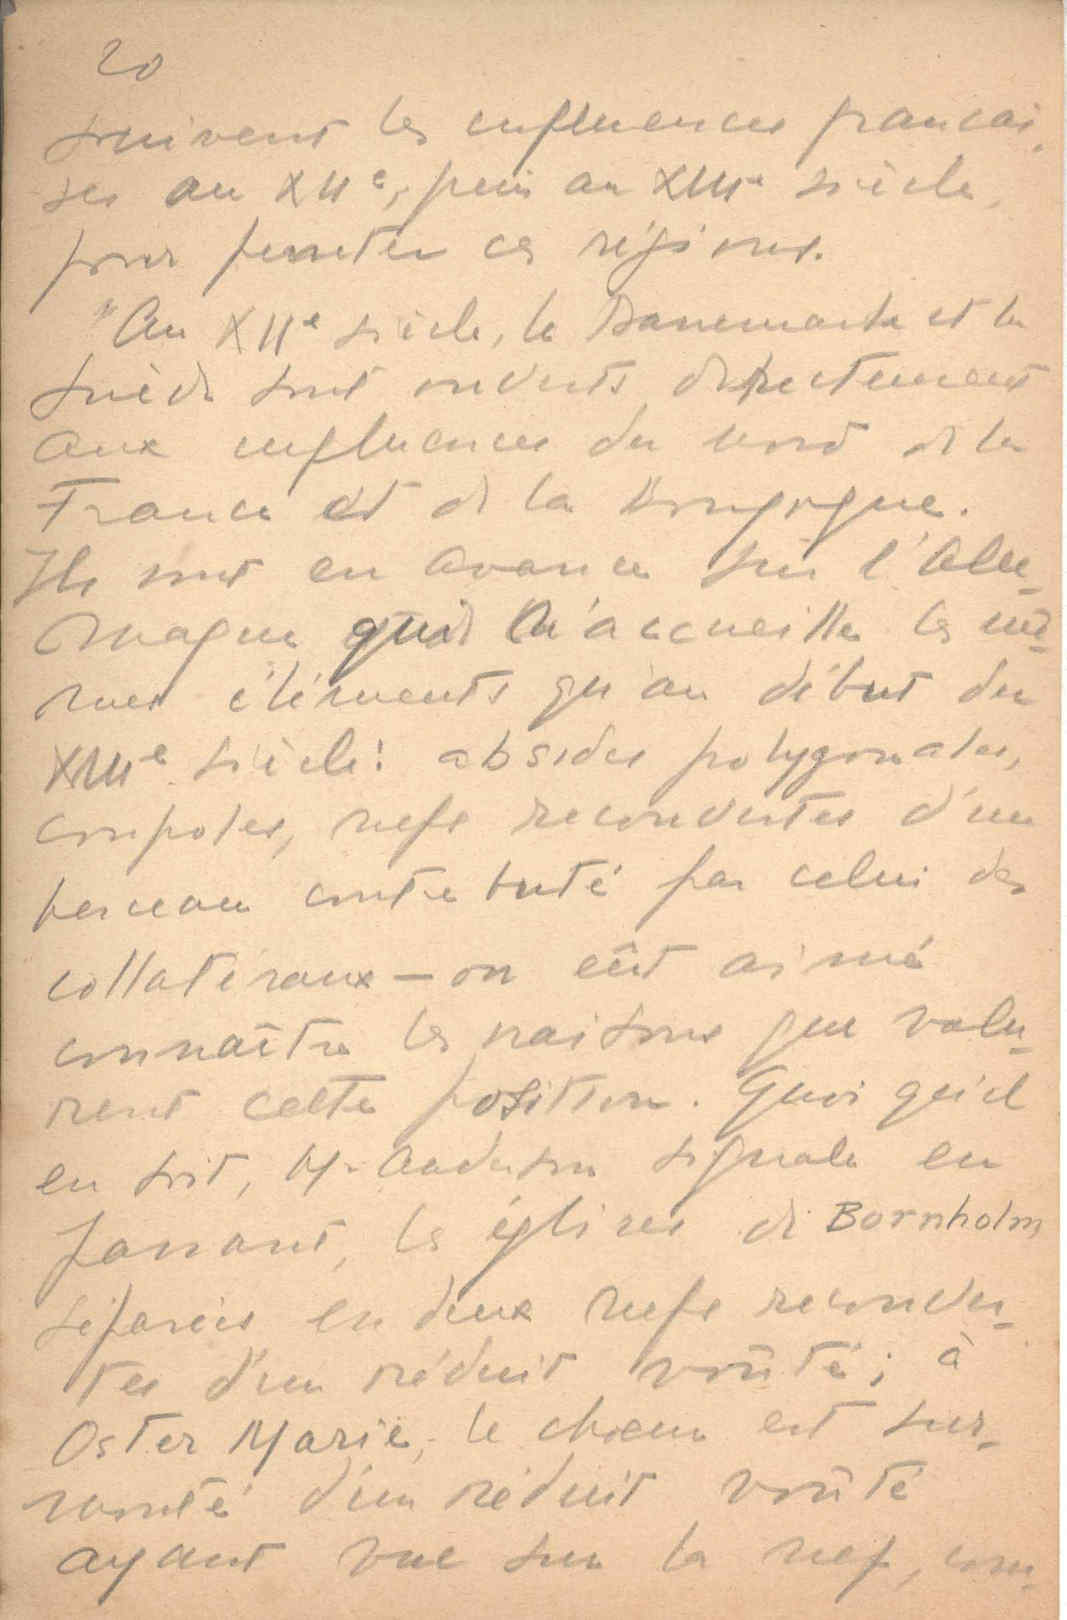 20
suivent les influences françai-
ses au XIIe, puis au XIIIe siècle,
pour pénétrer ces régions.
"Au XIIe siècle, le Danemark et la
Suède sont ouverts directement
aux influences du nord de la
France et de la Bourgogne.
Ils sont en avance sur l'Alle-
magne qui n'accueille les mê-
mes éléments qu'au début du
XIIIe siècle: absides polygonales,
coupoles, nefs recouvertes d'un
berceau contrebuté par celui des
collatéraux — on eût aimé
connaître les raisons que valu-
rent cette position. Quoi qu'il
en soit, M. Anderson signale en
passant, les églises de Bornholm,
séparées en deux nefs recouver-
tes d'un réduit voûté; à
Oster Marie, le chœur est sur-
monté d'un réduit voûté
ayant vue sur la nef, com-